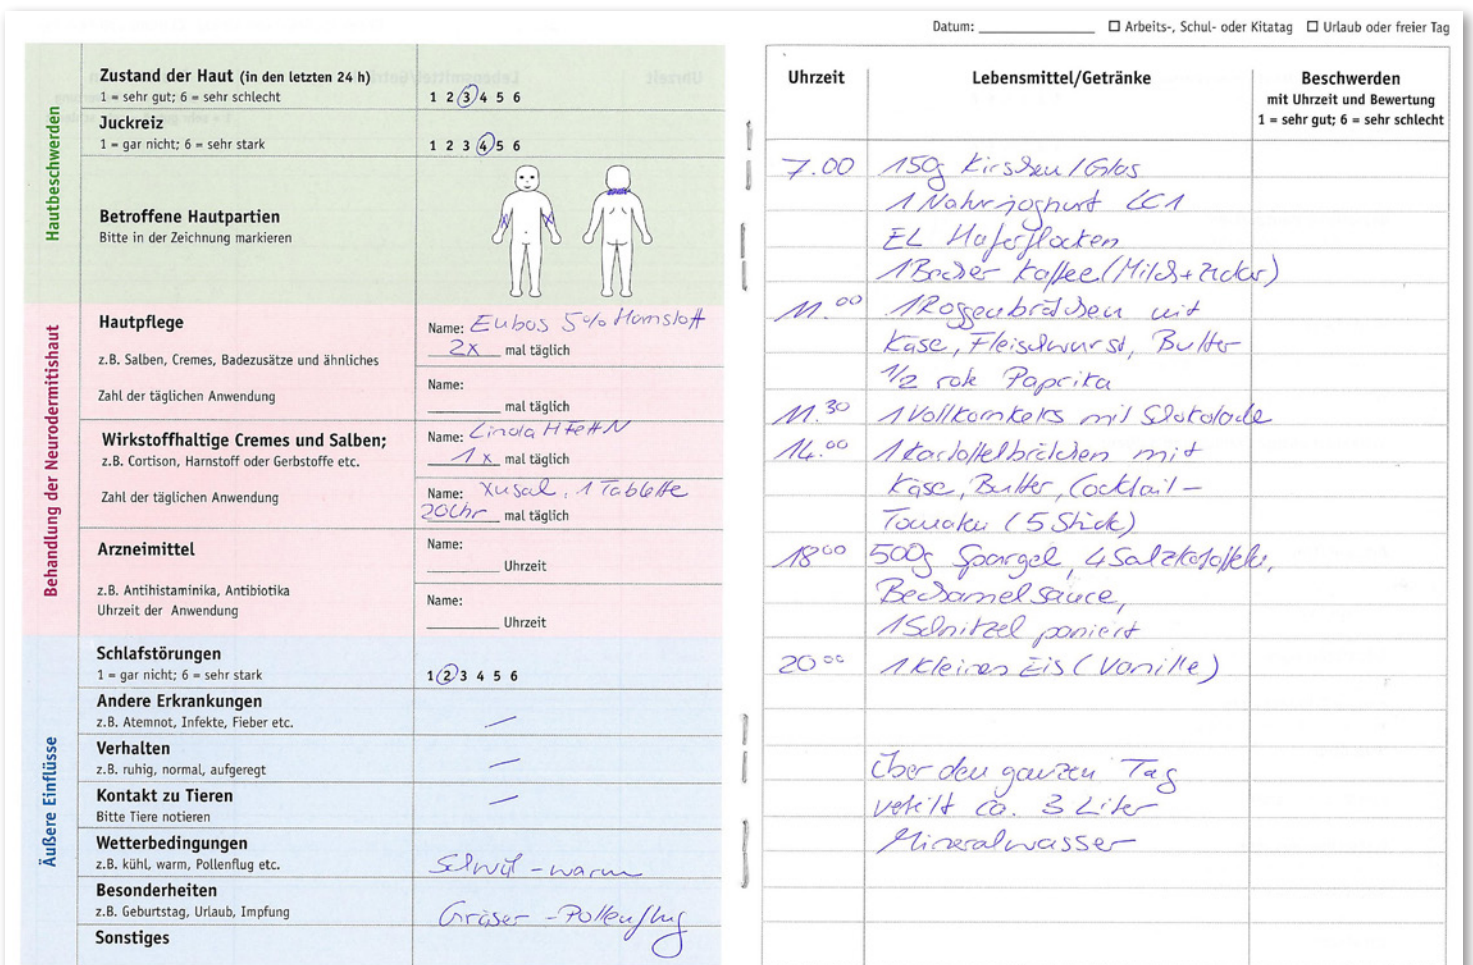 Datum: ____________ ☐ Arbeits-, Schul- oder Kitatag ☐ Urlaub oder freier Tag
Hautbeschwerden
Zustand der Haut (in den letzten 24 h)
1 = sehr gut; 6 = sehr schlecht
1 2 3 4 5 6
Juckreiz
1 = gar nicht; 6 = sehr stark
1 2 3 4 5 6
Betroffene Hautpartien
Bitte in der Zeichnung markieren
Behandlung der Neurodermitishaut
Hautpflege
z.B. Salben, Cremes, Badezusätze und ähnliches
Zahl der täglichen Anwendung
Name: Eubos 5% Harnstoff
2x mal täglich
Name:
________ mal täglich
Wirkstoffhaltige Cremes und Salben;
z.B. Cortison, Harnstoff oder Gerbstoffe etc.
Zahl der täglichen Anwendung
Name: Linola H Fett N
1x mal täglich
Name: Xusal, 1 Tablette
20Uhr mal täglich
Arzneimittel
z.B. Antihistaminika, Antibiotika
Uhrzeit der Anwendung
Name:
________ Uhrzeit
Name:
________ Uhrzeit
Äußere Einflüsse
Schlafstörungen
1 = gar nicht; 6 = sehr stark
1 2 3 4 5 6
Andere Erkrankungen
z.B. Atemnot, Infekte, Fieber etc.
—
Verhalten
z.B. ruhig, normal, aufgeregt
—
Kontakt zu Tieren
Bitte Tiere notieren
—
Wetterbedingungen
z.B. kühl, warm, Pollenflug etc.
Schwül - warm
Besonderheiten
z.B. Geburtstag, Urlaub, Impfung
Gräser - Pollenflug
Sonstiges
Uhrzeit Lebensmittel/Getränke Beschwerden
mit Uhrzeit und Bewertung
1 = sehr gut; 6 = sehr schlecht
7.00 150g Kirschen/Glas
1 Naturjoghurt LC1
EL Haferflocken
1 Becher Kaffee (Milch+Zucker)
11.00 1 Roggenbrötchen mit
Käse, Fleischwurst, Butter
1/2 rote Paprika
11.30 1 Vollkornkeks mit Schokolade
14.00 1 Kartoffelbrötchen mit
Käse, Butter, Cocktail-
Tomaten (5 Stück)
18 00 500g Spargel, 4 Salzkartoffeln,
Bechamelsauce,
1 Schnitzel paniert
20 00 1 kleines Eis (Vanille)
Über den ganzen Tag
verteilt ca. 3 Liter
Mineralwasser